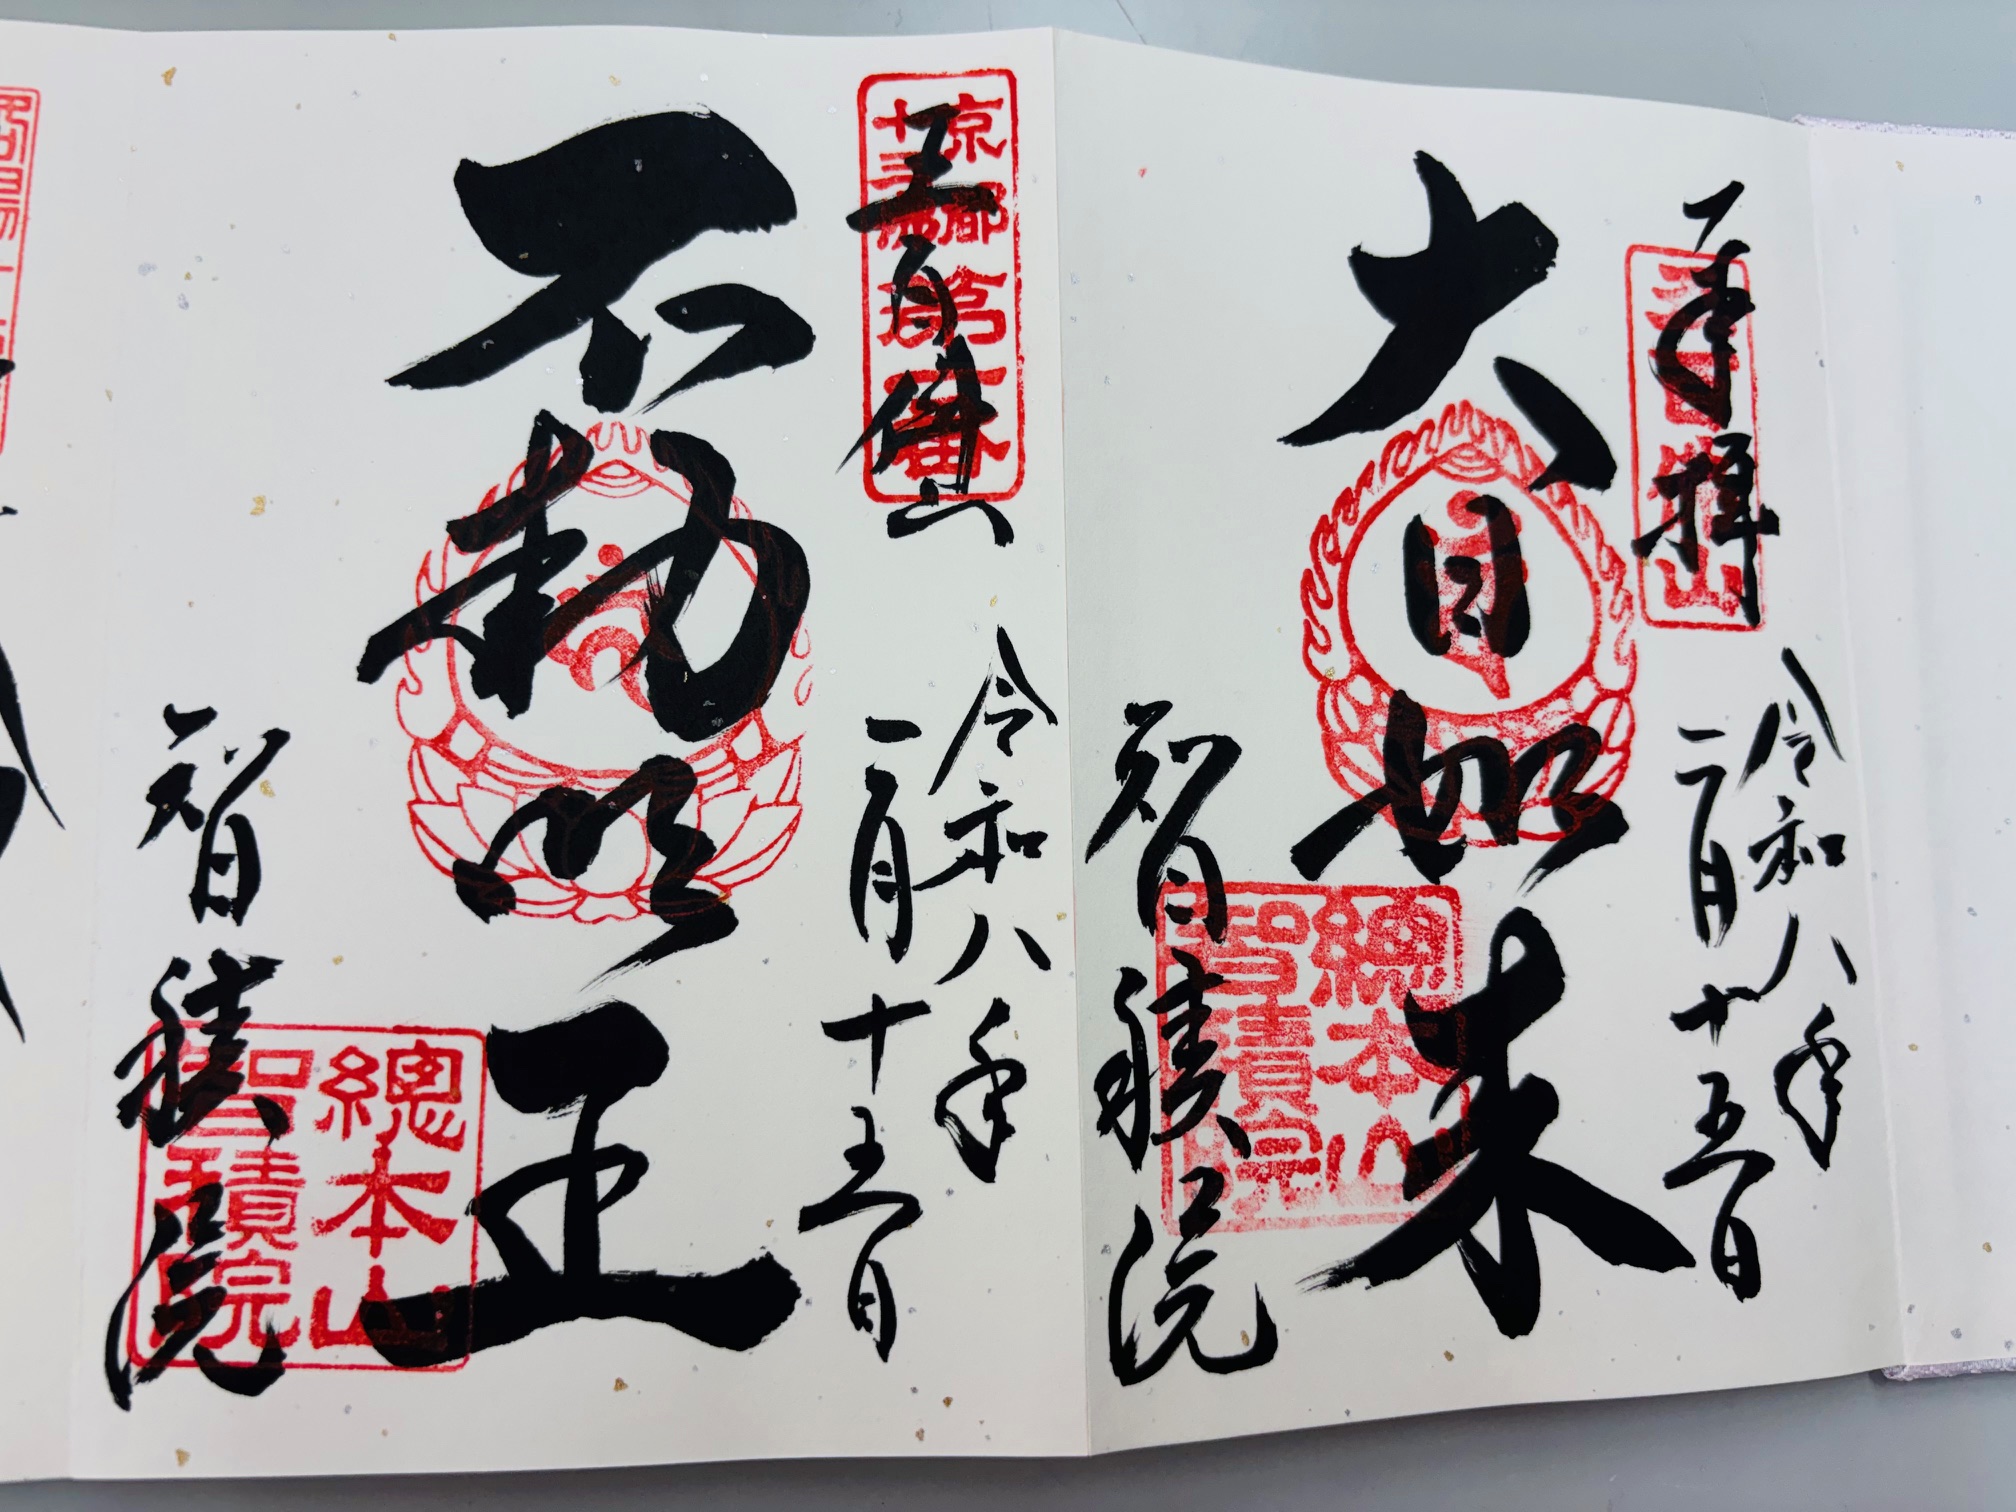 奉拝
五百佛山
令和八年
二月十五日
大日如来
總本山
智積院
智積院
五百佛山
京都
十三佛
第一番
令和八年
二月十五日
不動明王
總本山
智積院
智積院